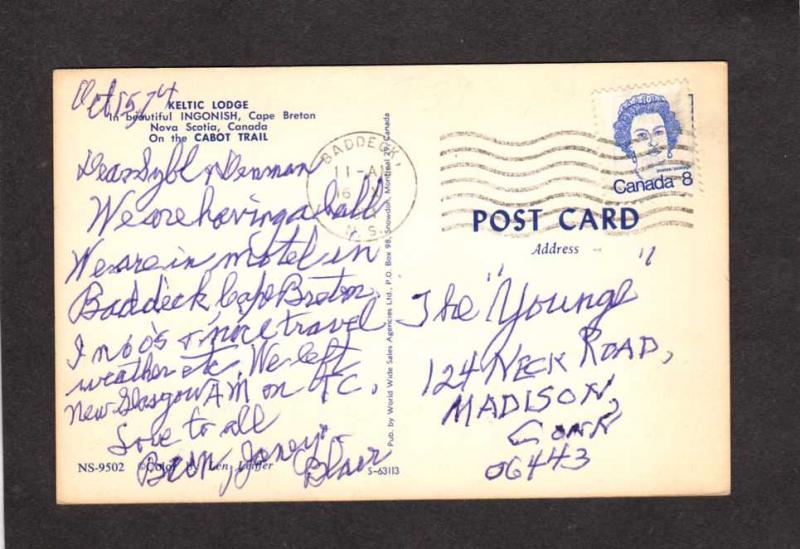 Oct 15, 74
KELTIC LODGE
In beautiful INGONISH, Cape Breton
Nova Scotia, Canada
On the CABOT TRAIL
Dear Sybl & Denman
We are having a ball
We are in motel in
Baddeck Cape Breton
In 60's & nice travel
weather etc. We left
New Glasgow AM on TC.
Love to all
Janey
Blair
NS-9502 ©Color by Len
S-63113
Pub. by World Wide Sales Agencies Ltd., P.O. Box 98, Snowdon, Montreal 29, Canada
BADDECK
11-AM
16
N.S.
Canada 8
POST CARD
Address
The "Youngs"
124 NECK ROAD,
MADISON,
CONN
06443